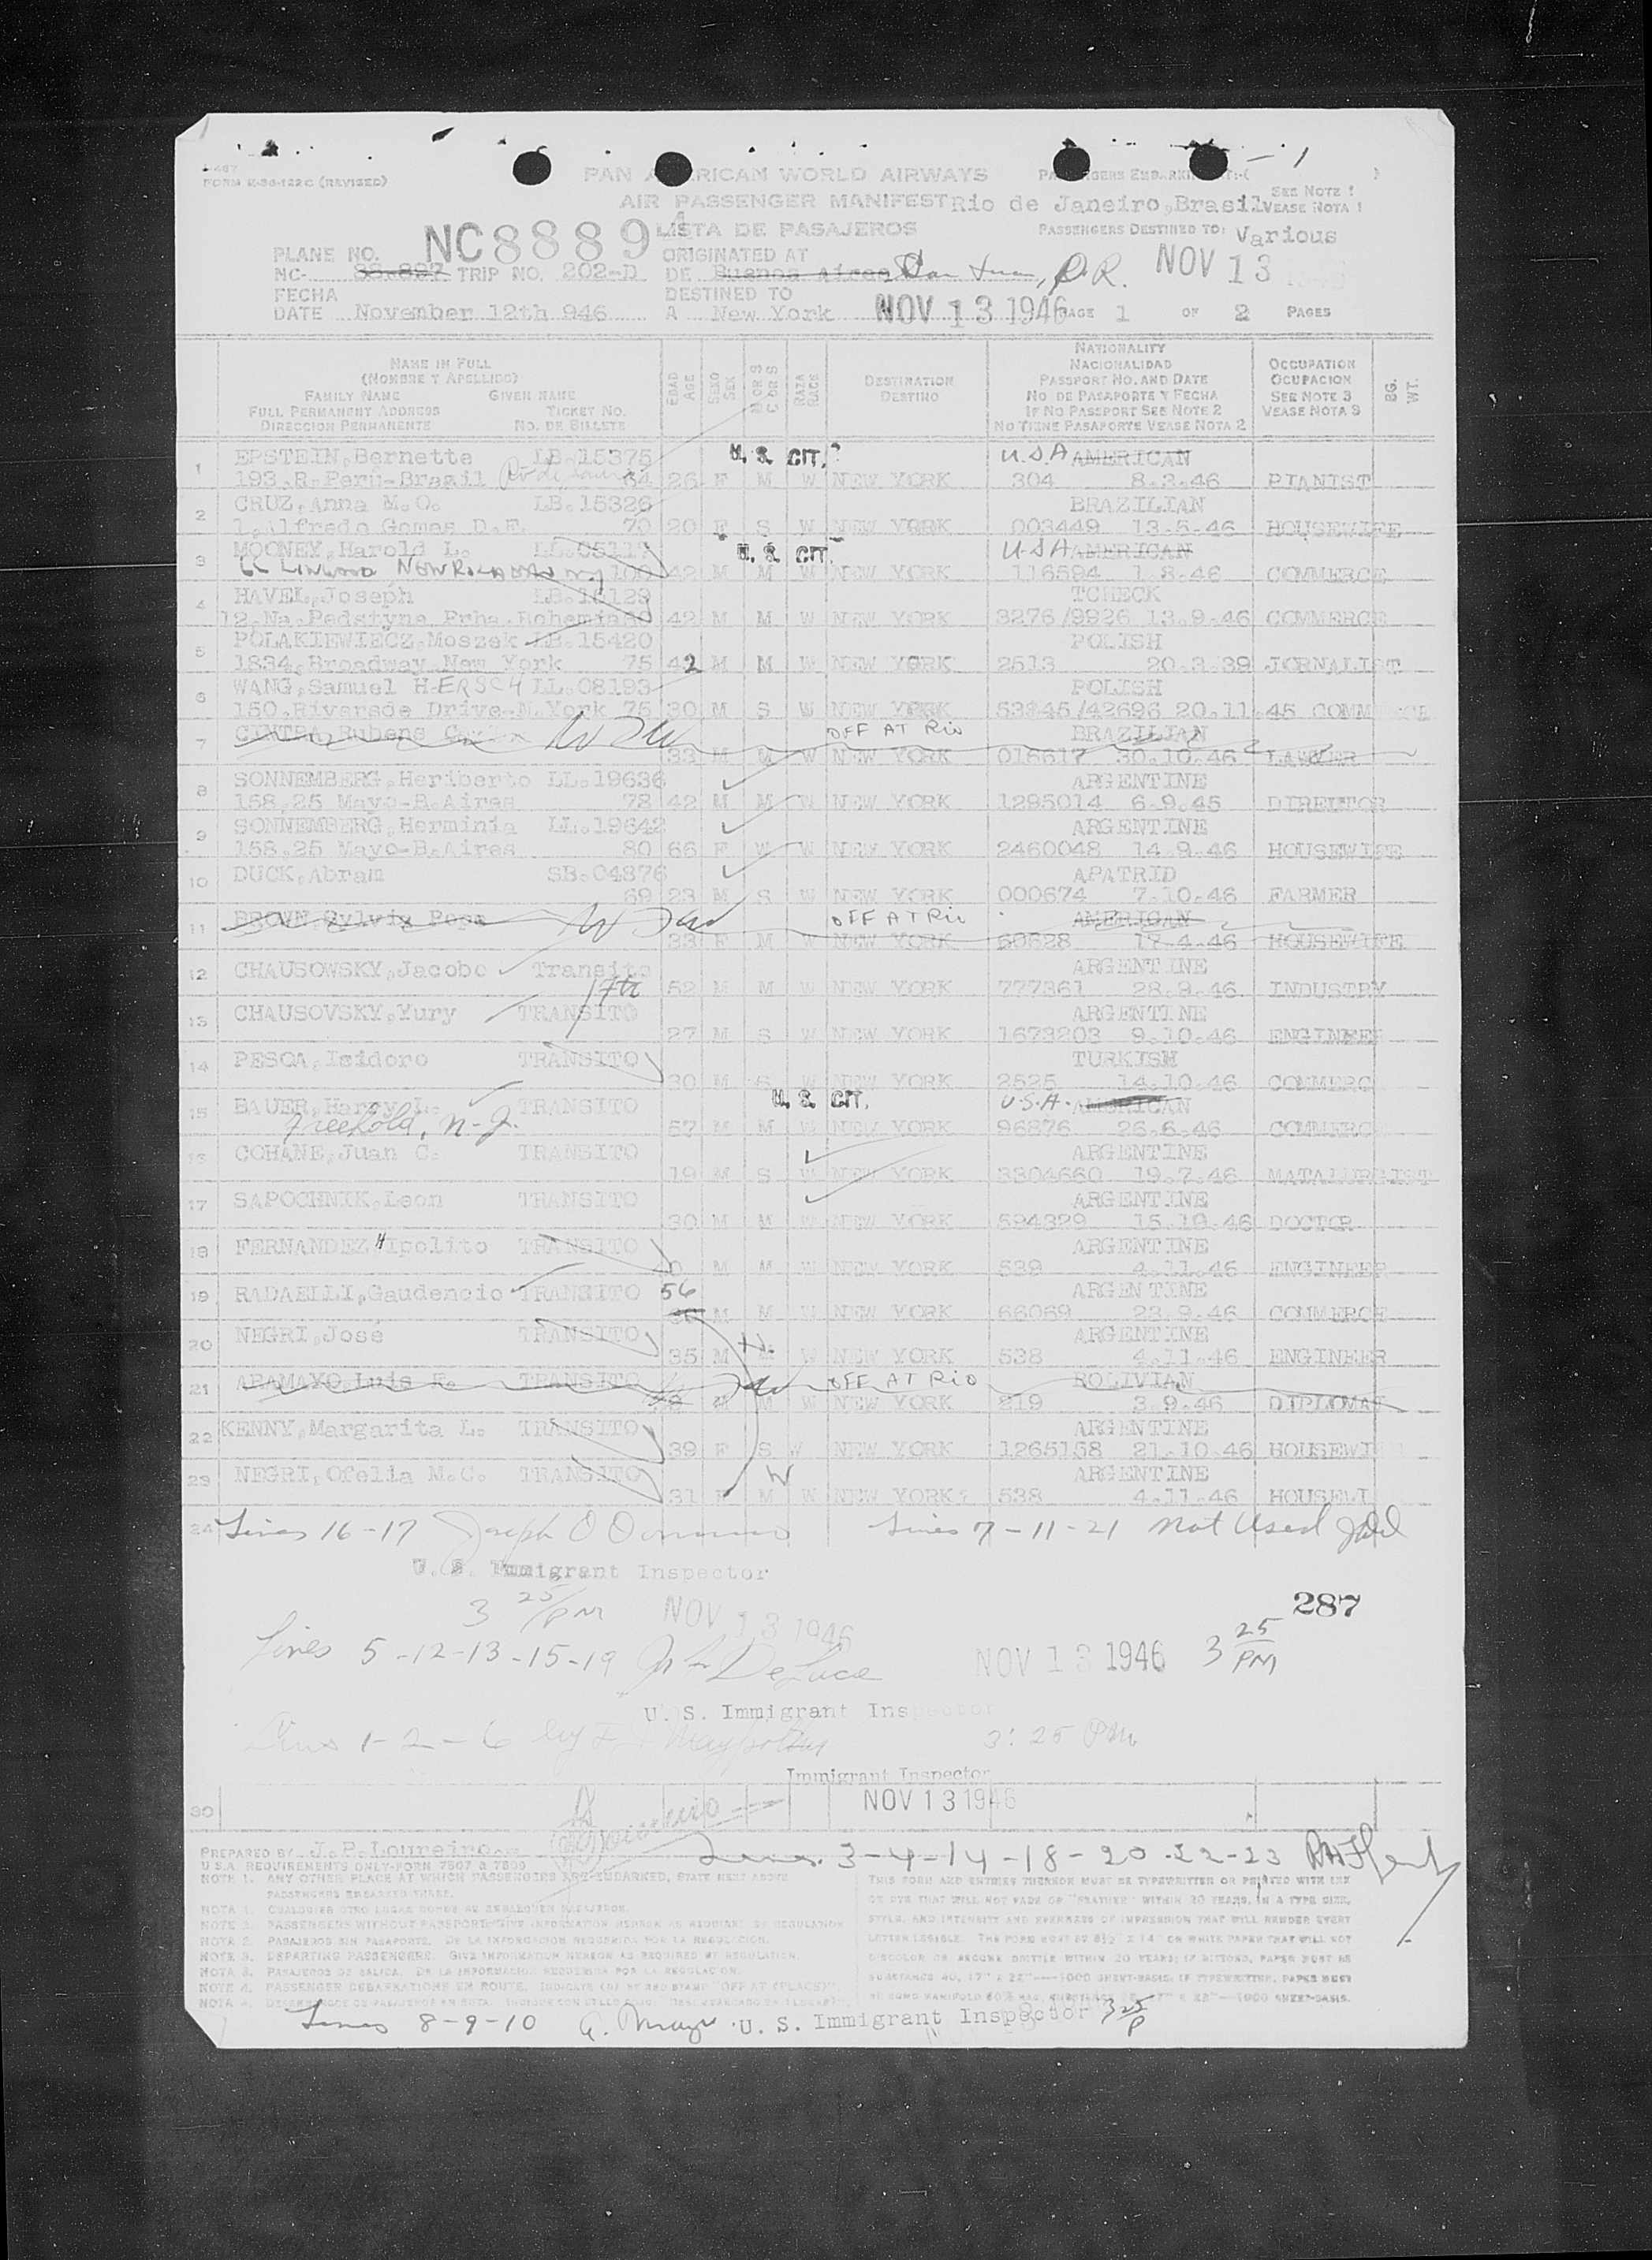 - 1
FORM K-36-122C (REVISED)
PAN AMERICAN WORLD AIRWAYS
AIR PASSENGER MANIFEST Rio de Janeiro, Brasil
SEE NOTE 1
VEASE NOTA 1
LISTA DE PASAJEROS
PASSENGERS DESTINED TO: Various
PLANE NO. NC 8889 ORIGINATED AT
NC- 88-827 TRIP NO. 202-D DE Buenos Aires San Juan, P.R. NOV 13
FECHA DESTINED TO
DATE November 12th 946 A New York NOV 13 1946 PAGE 1 OF 2 PAGES
NAME IN FULL
(NOMBRE Y APELLIDO)
FAMILY NAME GIVEN NAME
FULL PERMANENT ADDRESS TICKET NO.
DIRECCION PERMANENTE NO. DE BILLETE
EDAD AGE
SEXO SEX
M OR S
C OR S
RAZA RACE
DESTINATION
DESTINO
NATIONALITY
NACIONALIDAD
PASSPORT NO. AND DATE
NO DE PASAPORTE Y FECHA
IF NO PASSPORT SEE NOTE 2
NO TIENE PASAPORTE VEASE NOTA 2
OCCUPATION
OCUPACION
SEE NOTE 3
VEASE NOTA 3
BG. WT.
1 EPSTEIN, Bernette LB.15375 U. S. CIT. U.S.A AMERICAN
193, R-Perú-Brasil 64 26 F M W NEW YORK 304 8.3.46 PIANIST
2 CRUZ, Anna M.O. LB.15326 BRAZILIAN
1, Alfredo Gomes D.F. 70 20 F S W NEW YORK 003449 13.5.46 HOUSEWIFE
3 MOONEY, Harold L. LL.05117 U. S. CIT. USA AMERICAN
100 42 M M W NEW YORK 116594 1.8.46 COMMERCE
4 HAVEL, Joseph TCHECK
42 M M W NEW YORK 3276/9926 13.9.46 COMMERCE
5 POLAKIEWIECZ, Moszek LB.15420 POLISH
1834, Broadway, New York 75 42 M M W NEW YORK 2513 20.3.39 JORNALIST
6 WANG, Samuel HERSCH LL.08193 POLISH
150, Riverside Drive-N.York 75 30 M S W NEW YORK 20.11.45
7 CINTRA, Rubens OFF AT Rio BRAZILIAN
33 M M W NEW YORK 018617 30.10.46 LAWYER
8 SONNEMBERG, Heriberto LL.19636 ARGENTINE
158, 25 Mayo-B.Aires 78 42 M M W NEW YORK 1295014 6.9.45 DIRECTOR
9 SONNEMBERG, Herminia LL.19642 ARGENTINE
158, 25 Mayo-B.Aires 80 66 F W W NEW YORK 2460048 14.9.46 HOUSEWIFE
10 DUCK, Abram SB.04876 APATRID
69 23 M S W NEW YORK 000674 7.10.46 FARMER
11 BROWN, Sylvia Rosa OFF AT Rio AMERICAN
33 F M W NEW YORK 60628 17.4.46 HOUSEWIFE
12 CHAUSOWSKY, Jacobo Transito ARGENTINE
52 M M W NEW YORK 777361 28.9.46 INDUSTRY
13 CHAUSOVSKY, Yury TRANSITO ARGENTINE
27 M S W NEW YORK 1673203 9.10.46 ENGINEER
14 PESCA, Isidoro TRANSITO TURKISH
30 M S W NEW YORK 2525 14.10.46 COMMERC
15 BAUER, Harry L. TRANSITO U. S. CIT. U.S.A. AMERICAN
Freehold, N.J. 57 M M W NEW YORK 96876 26.6.46 COMMERC
16 COHANE, Juan C. TRANSITO ARGENTINE
19 M S W NEW YORK 3304660 19.7.46 MATALURGIST
17 SAPOCHNIK, Leon TRANSITO ARGENTINE
30 M M W NEW YORK 594329 15.10.46 DOCTOR
18 FERNANDEZ, Hipolito TRANSITO ARGENTINE
40 M M W NEW YORK 539 4.11.46 ENGINEER
19 RADAELLI, Gaudencio TRANSITO 56 ARGENTINE
M M W NEW YORK 66069 23.9.46 COMMERCE
20 NEGRI, José TRANSITO ARGENTINE
35 M W NEW YORK 538 4.11.46 ENGINEER
21 ARAMAYO, Luis F. TRANSITO OFF AT Rio BOLIVIAN
M M W NEW YORK 219 3.9.46 DIPLOMAT
22 KENNY, Margarita L. TRANSITO ARGENTINE
39 F S W NEW YORK 1265158 21.10.46 HOUSEWI
23 NEGRI, Ofelia M.C. TRANSITO ARGENTINE
31 F M W NEW YORK 538 4.11.46 HOUSEWI
24 Lines 16-17 Lines 7-11-21 Not Used
U. S. Immigrant Inspector
3 25/PM NOV 13 1946 287
Lines 5-12-13-15-19 NOV 13 1946 3 25 PM
U. S. Immigrant Inspector
Lines 1-2-6 3:25 PM
Immigrant Inspector
30 NOV 13 1946
PREPARED BY J.P. Loureiro Lines 3-4-14-18-20-22-23
U S A REQUIREMENTS ONLY-FORM 7507 & 7509
NOTE 1. ANY OTHER PLACE AT WHICH PASSENGERS ARE EMBARKED, STATE NEXT ABOVE
PASSENGERS EMBARKED THERE.
NOTE 2. PASSENGERS WITHOUT PASSPORT GIVE INFORMATION HEREON AS REQUIRED BY REGULATION
NOTA 2. PASAJEROS SIN PASAPORTE. DE LA INFORMACION REQUERIDA POR LA REGULACION.
NOTE 3. DEPARTING PASSENGERS. GIVE INFORMATION HEREON AS REQUIRED BY REGULATION.
NOTA 3. PASAJEROS DE SALIDA. DE LA INFORMACION REQUERIDA POR LA REGULACION.
THIS FORM AND ENTRIES THEREON MUST BE TYPEWRITTEN OR PRINTED WITH INK
OR DYE THAT WILL NOT FADE OR "FEATHER" WITHIN 20 YEARS, IN A TYPE SIZE,
STYLE, AND INTENSITY AND EVENNESS OF IMPRESSION THAT WILL RENDER EVERY
LETTER LEGIBLE. THE FORM MUST BE 8½ X 14 ON WHITE PAPER THAT WILL NOT
DISCOLOR OR BECOME BRITTLE WITHIN 20 YEARS;
Lines 8-9-10 U. S. Immigrant Inspector 3 25 P